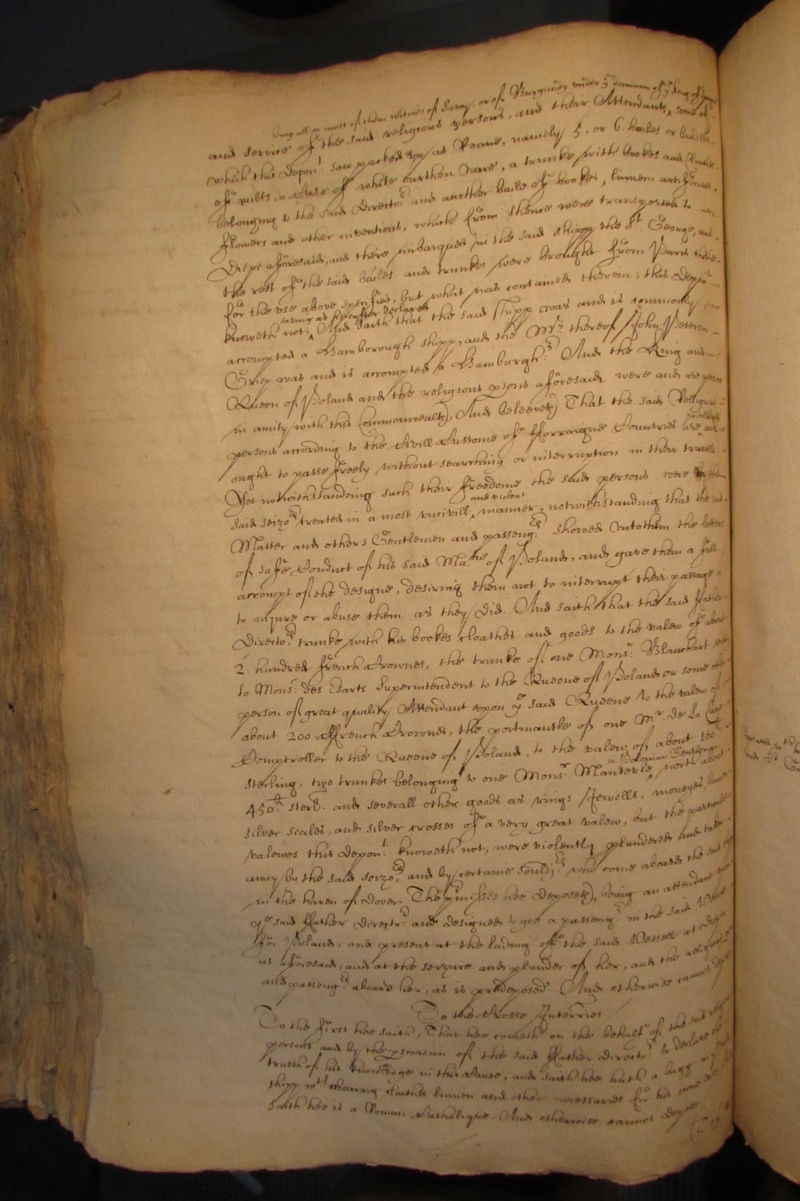 being all or most of them natives of Savoy, or of Burgundy under ye dominion of ye king of
and service of the said religious persons, and their Attendants, some of
which this Depont saw packed up at Roane, namely 5. or 6 bailes or
of quilts, a Case of white earthen ware, a trunke with bookes and
belonging to the said Director and another baile of bookes, linnen artificiall
flowers and other inventions, which from thence were transported to
Diepe aforesaid, and there imbarqued in the said shipp the St. George, and
the rest of the said bailes and trunkes were brought from Paris thither
for the use above specified, but what was contained therein, this Depont
saving as hereafter declared
knoweth not, And saith that the said shipp was and is commonly
accompted a Hamborough shipp, and the Mr. thereof John Peterson
Griep was and is accompted a Hamburgher. And the King and
Queen of Poland and the religious psons aforesaid were and are
in amity with this Commonwealth, And beleeveth That the said Religious
persons according to the Civill Customes of fforraigne Countries are and
ought to passe freely without searching or interruption in their travells.
Yet notwithstanding such their freedome the said persons were by the
and violent
said seizors treated in a most uncivill, manner, notwithstanding that the said
Master and others Gentlemen and passengers shewed unto them the letters
of safe Conduct of his said Matie of Poland, and gave them a full
accompt of the designe, desiring them not to interrupt their passage
to injure or abuse them as they did. And saith that the said Father
Directors trunke with his bookes cloathes and goods to the valew of about
2. hundred french Crownes, the trunke of one Monsr. Blanchart
to Monsr. des Essarts Superintendent to the Queene of Poland or some other
person of great quality Attendant upon ye said Queene to the valew of
about 200 ffrench Crownes, the portmantle of one Mr. de la
Comptroller to the Queene of Poland, to the valew of about 100
sterling, two trunkes belonging to one Monsr. worth about
450li sterl: and severall other goods as rings Jewells, moneyes,
silver scales, and silver crosses of a very great valew, but the particular
valewes this Depont. knoweth not, were violently plundered and taken
away by the said seizors and by certaine souldjrs who came aboard the said
in the haven of Dover. The pmisses hee deposeth, being an attendant
ye said ffather Director and designed to goe a passenger in the said Vessell
for Poland, and present at the lading of the said Vessell at Diepe
as aforesaid, and at the seizure and plunder of her, and the religious
and passengers aboard her, as is predeposed. And otherwise cannot
To the Crosse Interries
To the first hee saith, That hee cometh on the behalfe of the said
persons and by the pswasion of the said ffather Director to declare the
trueth of his knowledge in this Cause, and saith hee hath a bagg
shipp wth wearing cloathes linnen and other necessaries for his owne
saith hee is a Roman Catholique. And otherwise cannot depose